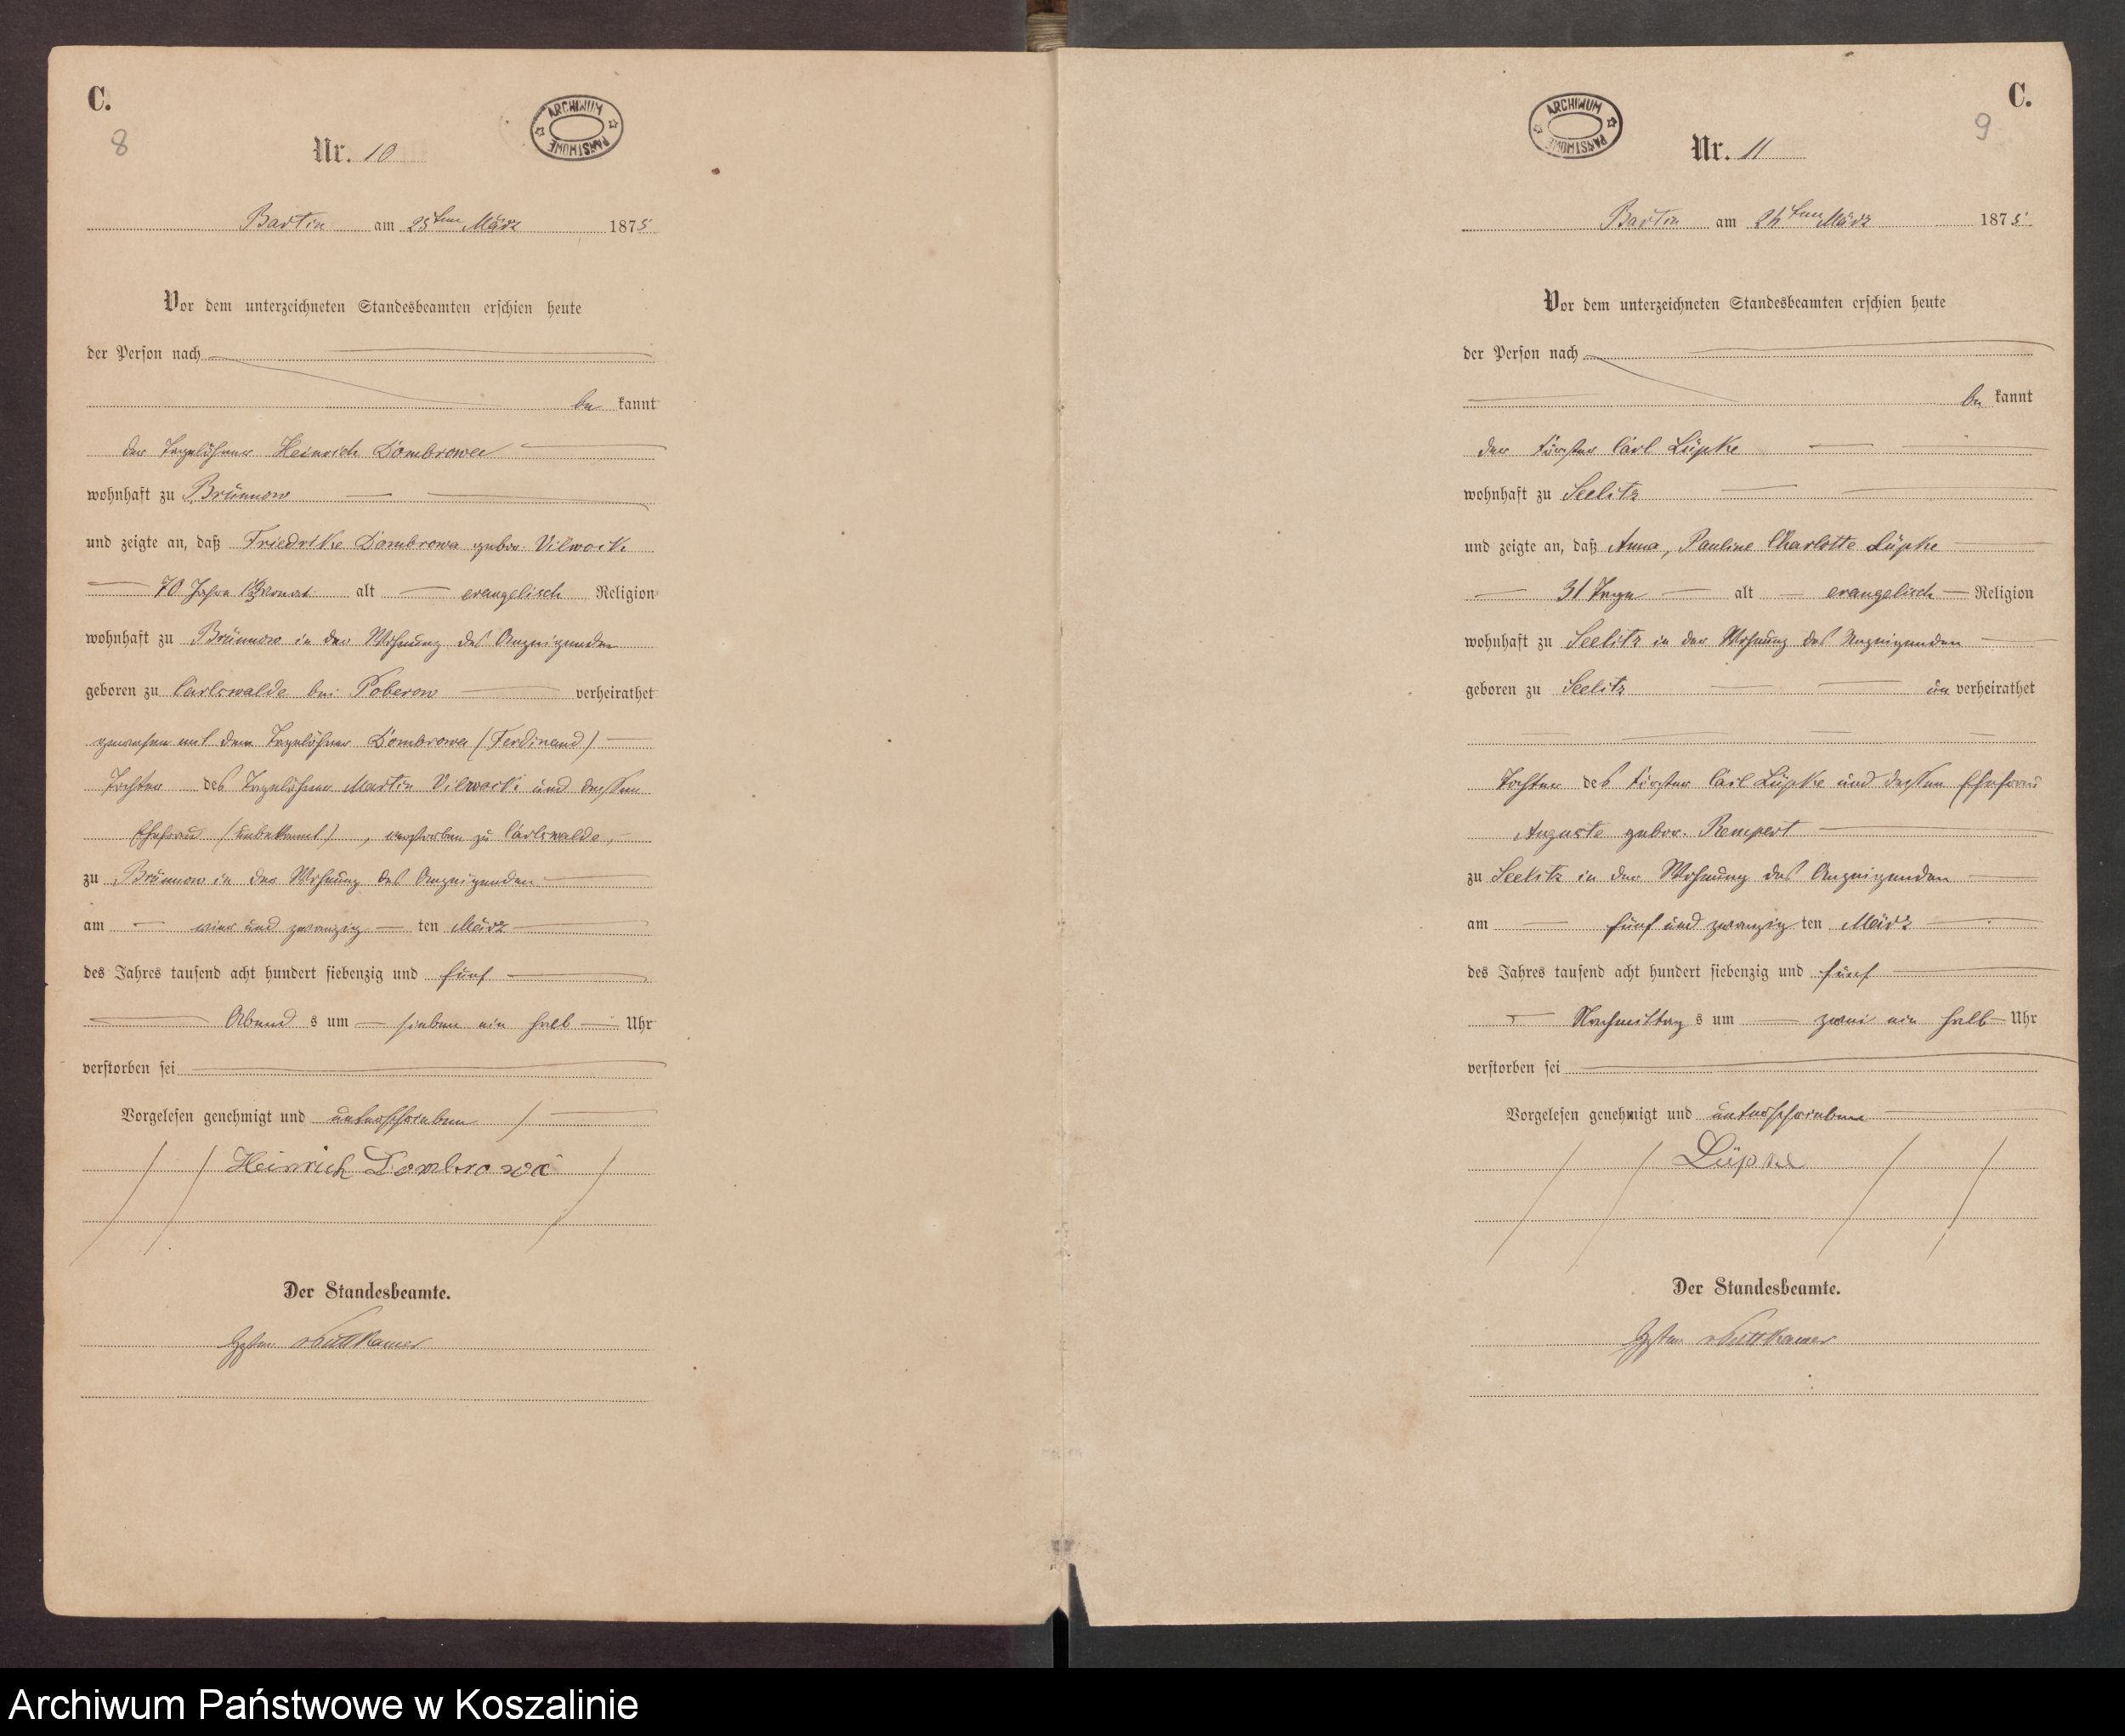 C.
8
ARCHIWUM PAŃSTWOWE
Nr. 10
Bartin am 25ten März 1875
Vor dem unterzeichneten Standesbeamten erschien heute
der Person nach
be kannt
der Tagelöhner Heinrich Dombrowa
wohnhaft zu Brünnow
und zeigte an, daß Friedrike Dombrowa gebor. Vilwock
70 Jahre Monat alt evangelisch Religion
wohnhaft zu Brünnow in der Wohnung des Anzeigenden
geboren zu Carlswalde bei Poberow verheirathet
gewesen mit dem Tagelöhner Dombrowa (Ferdinand)
Tochter des Tagelöhner Martin Vilwock und dessen
Ehefrau (unbekannt), verstorben zu Carlswalde,
zu Brünnow in der Wohnung des Anzeigenden
am vier und zwanzig ten März
des Jahres tausend acht hundert siebenzig und fünf
Abend s um sieben ein halb Uhr
verstorben sei
Vorgelesen genehmigt und unterschrieben
Heinrich Dombrowa
Der Standesbeamte.
vPuttkamer
C.
9
ARCHIWUM PAŃSTWOWE
Nr. 11
Bartin am 26ten März 1875
Vor dem unterzeichneten Standesbeamten erschien heute
der Person nach
be kannt
der Förster Carl Lüpke
wohnhaft zu Seelitz
und zeigte an, daß Anna, Pauline Charlotte Lüpke
31 Tage alt evangelisch Religion
wohnhaft zu Seelitz in der Wohnung des Anzeigenden
geboren zu Seelitz un verheirathet
Tochter des Förster Carl Lüpke und dessen Ehefrau
Auguste gebor. Rempert
zu Seelitz in der Wohnung des Anzeigenden
am fünf und zwanzig ten März
des Jahres tausend acht hundert siebenzig und fünf
Nachmittag s um zwei ein halb Uhr
verstorben sei
Vorgelesen genehmigt und unterschrieben
Lüpke
Der Standesbeamte.
vPuttkamer
Archiwum Państwowe w Koszalinie